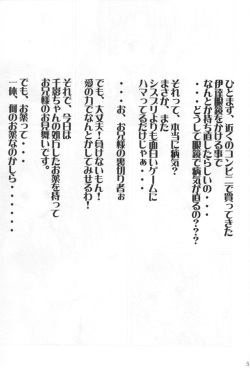 ひとまず、近くのコンビニで買ってきた
伊達眼鏡をかける事で
なんとか持ち直したらしいの・・・
・・・どうして眼鏡で病気が直るの？？？
それって、本当に病気？
まさか、また
シスプリよりも面白いゲームに
ハマってるだけじゃぁ・・・・
・・・お、お兄様の裏切り者ぉ
でも、大丈夫！負けないもん！
愛の力でなんとかしてみせるわ！
それで、今日は
千影ちゃんの処方したお薬を持って
お兄様のお見舞いです。
でも、お薬って・・・・
一体、何のお薬なのかしら・・・・
5